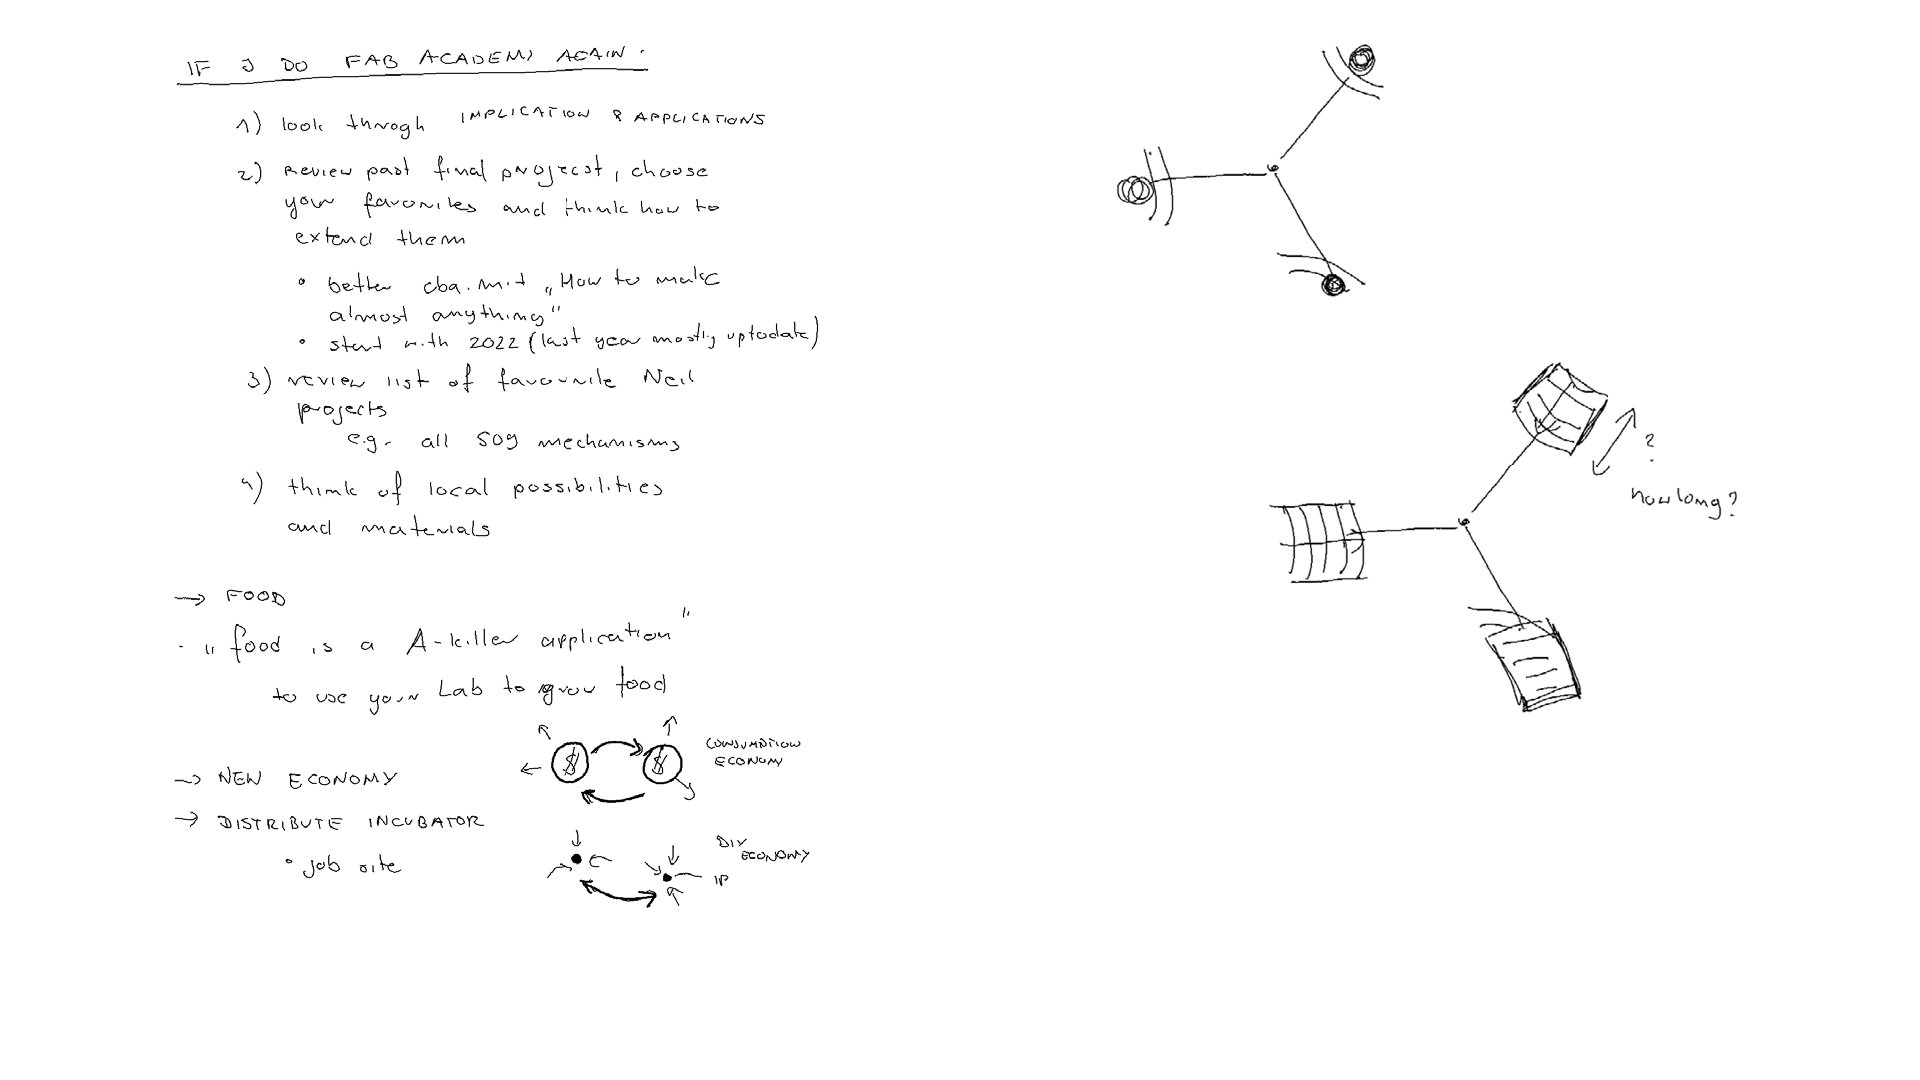 IF I DO FAB ACADEMY AGAIN.
1) look throgh IMPLICATION & APPLICATIONS
2) Review past final projecst, choose
your favorites and think how to
extend them
• better cba.mit „How to make
almost anything"
• start with 2022 (last year mostly uptodate)
3) review list of favourite Neil
projects
e.g. all 509 mechanisms
4) think of local possibilities
and materials
→ FOOD
• „food is a A-killer application"
to use your Lab to grow food
→ NEW ECONOMY
→ DISTRIBUTE INCUBATOR
• job site
$ $
CONSUMPTION
ECONOMY
DIY
ECONOMY
IP
?
how long?